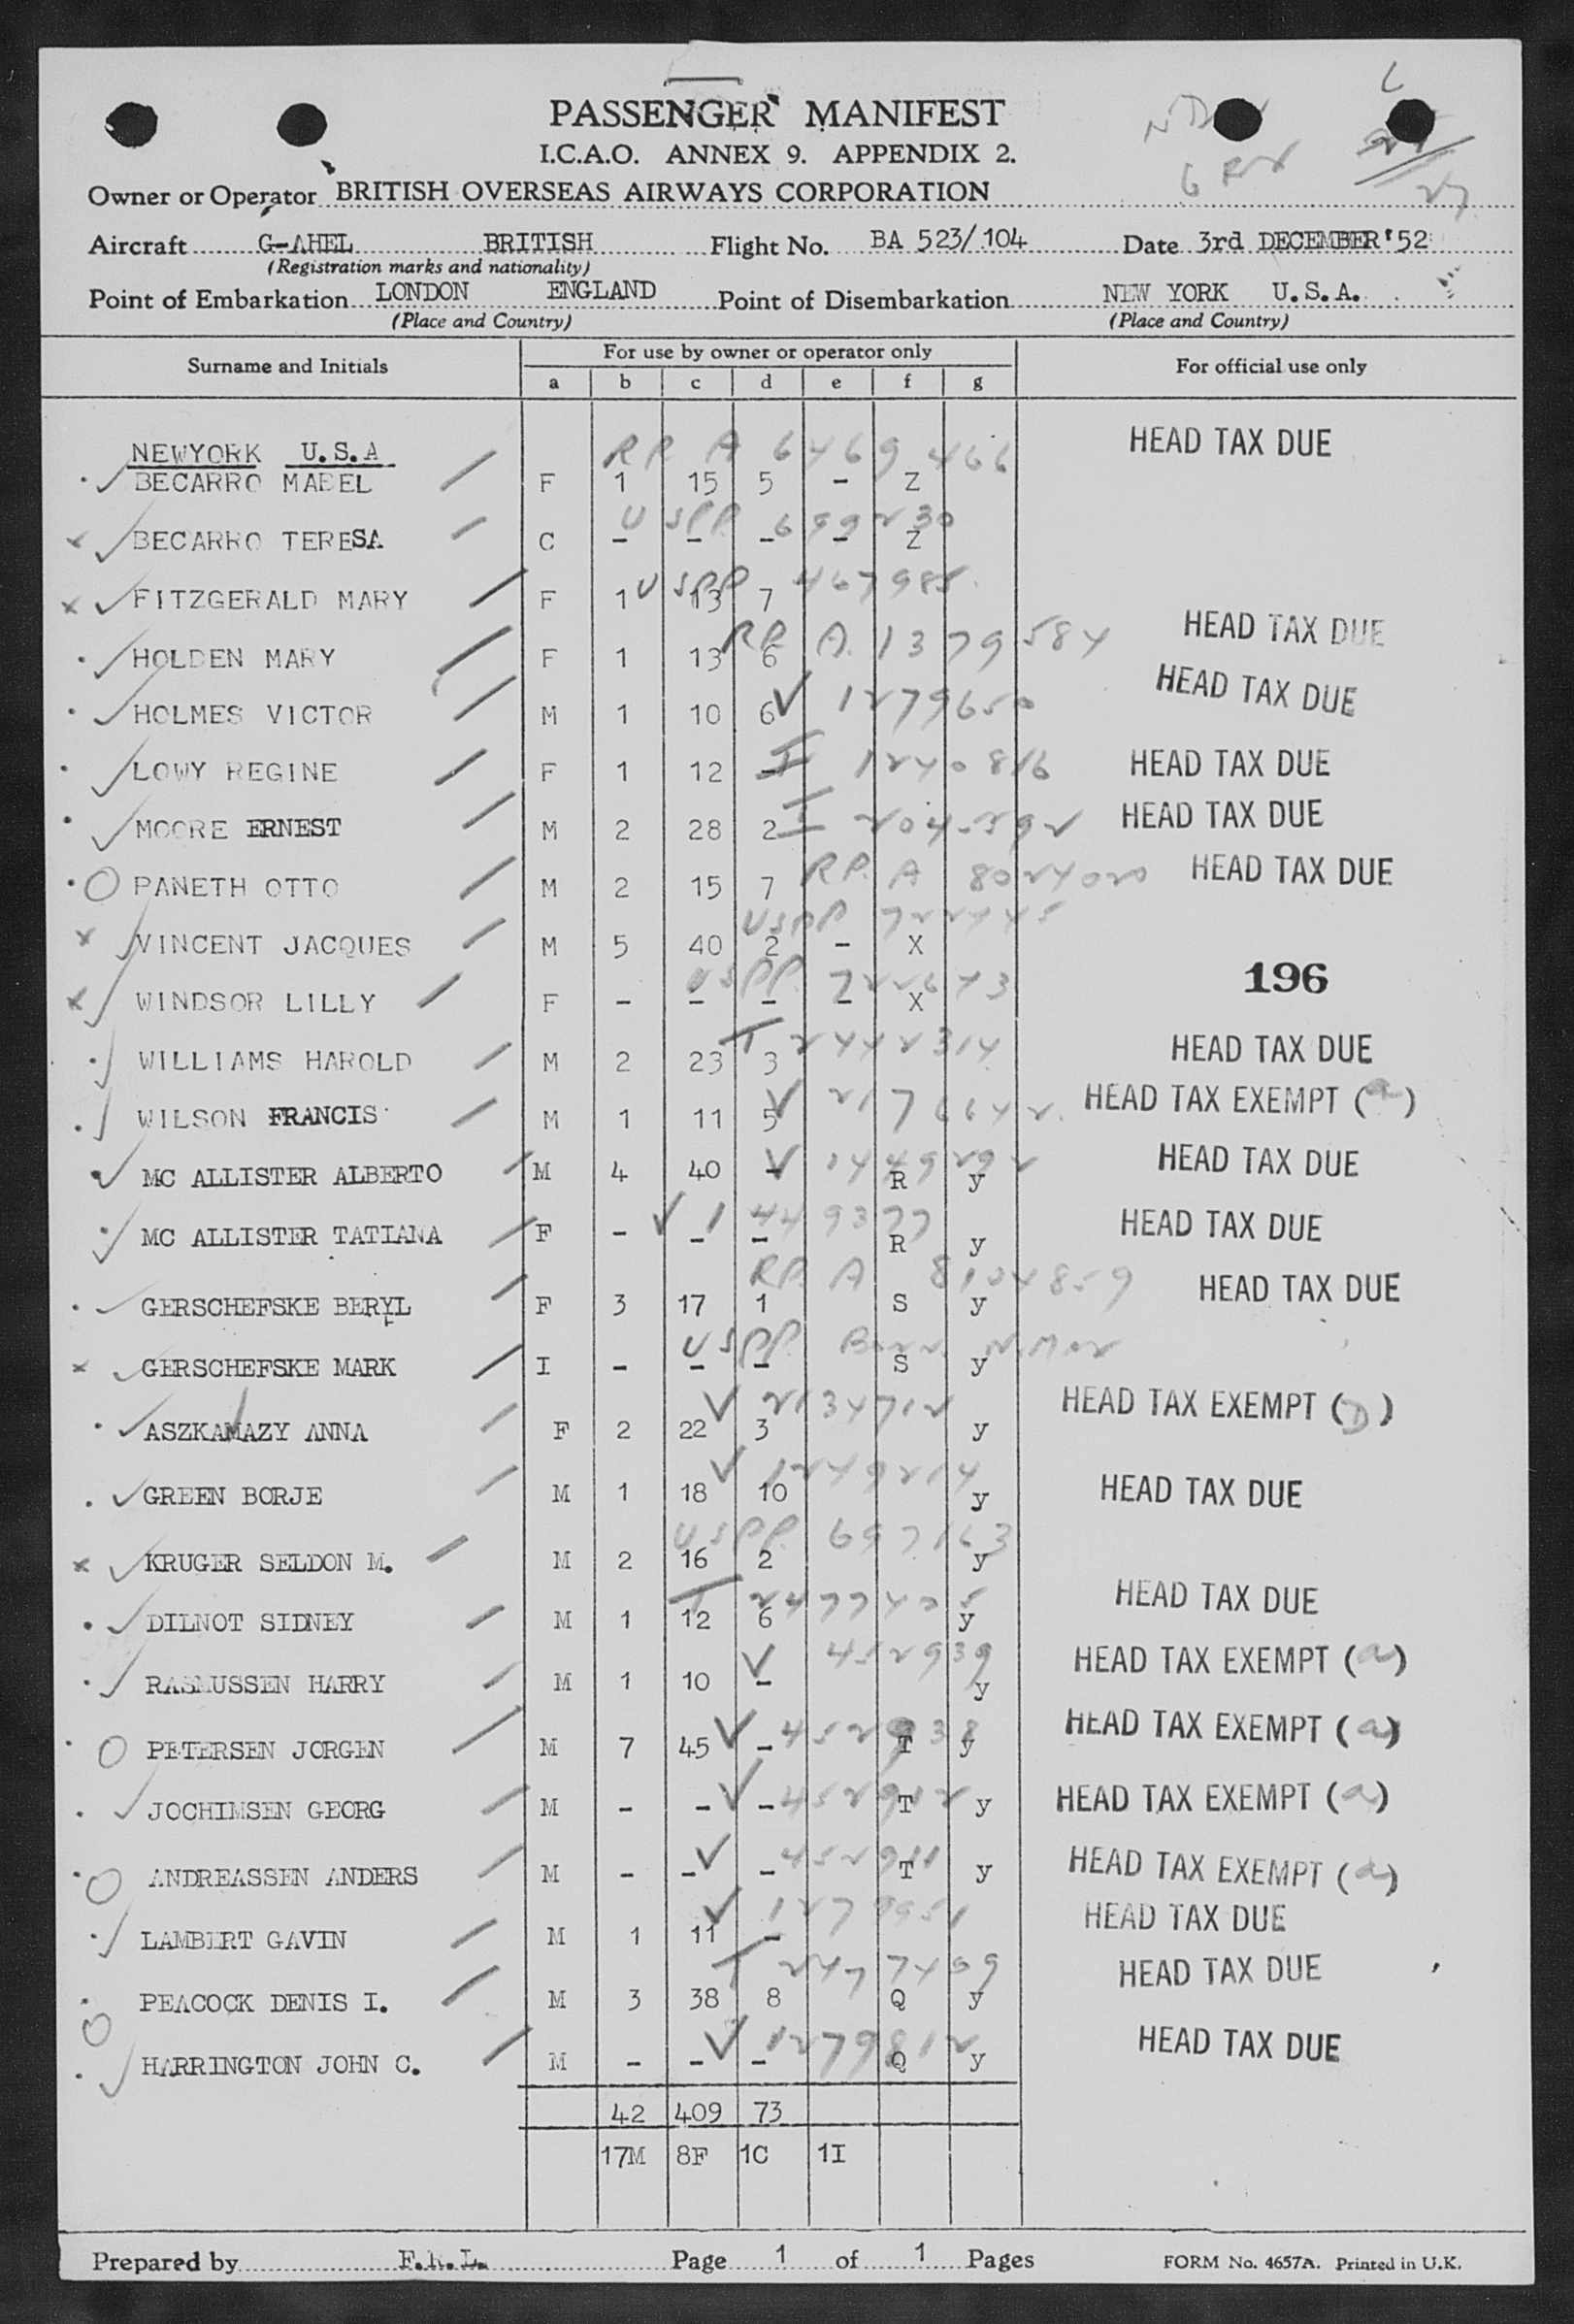 PASSENGER MANIFEST
I.C.A.O. ANNEX 9. APPENDIX 2.
Owner or Operator BRITISH OVERSEAS AIRWAYS CORPORATION
Aircraft G-AHEL BRITISH Flight No. BA 523/104 Date 3rd DECEMBER'52
(Registration marks and nationality)
Point of Embarkation LONDON ENGLAND Point of Disembarkation NEW YORK U.S.A.
(Place and Country) (Place and Country)
Surname and Initials For use by owner or operator only For official use only
a b c d e f g
NEWYORK U.S.A RR A 6469466 HEAD TAX DUE
BECARRO MABEL F 1 15 5 - Z
USPP 699230
BECARRO TERESA C - - - - Z
USPP 467985
FITZGERALD MARY F 1 13 7
RP. A. 1379584 HEAD TAX DUE
HOLDEN MARY F 1 13 6
HOLMES VICTOR M 1 10 6 V 1279650 HEAD TAX DUE
LOWY REGINE F 1 12 - I 1240816 HEAD TAX DUE
MOORE ERNEST M 2 28 2 I HEAD TAX DUE
PANETH OTTO M 2 15 7 RP. A 8024020 HEAD TAX DUE
USPP 722445
VINCENT JACQUES M 5 40 2 - X
USPP. 196
WINDSOR LILLY F - - - - X
WILLIAMS HAROLD M 2 23 3 I 2442314 HEAD TAX DUE
WILSON FRANCIS M 1 11 5 V 2176642 HEAD TAX EXEMPT (a)
MC ALLISTER ALBERTO M 4 40 - V 1449292 R y HEAD TAX DUE
MC ALLISTER TATIANA F - - - V 1449377 R y HEAD TAX DUE
RP. A 8104859 HEAD TAX DUE
GERSCHEFSKE BERYL F 3 17 1 S y
USPP.
GERSCHEFSKE MARK I - - - S y
V 2134712 HEAD TAX EXEMPT (D)
ASZKANAZY ANNA F 2 22 3 y
V 1249214
GREEN BORJE M 1 18 10 y HEAD TAX DUE
USPP. 697163
KRUGER SELDON M. M 2 16 2 y
I 2477405 HEAD TAX DUE
DILNOT SIDNEY M 1 12 6 y
V 452939 HEAD TAX EXEMPT (a)
RASMUSSEN HARRY M 1 10 - y
PETERSEN JORGEN M 7 45 - V 452938 T y HEAD TAX EXEMPT (a)
JOCHIMSEN GEORG M - - - V 452912 T y HEAD TAX EXEMPT (a)
ANDREASSEN ANDERS M - - - V 452911 T y HEAD TAX EXEMPT (a)
V 1279951 HEAD TAX DUE
LAMBERT GAVIN M 1 11 -
I 2477409 HEAD TAX DUE
PEACOCK DENIS I. M 3 38 8 Q y
V 1279812 HEAD TAX DUE
HARRINGTON JOHN C. M - - - Q y
42 409 73
17M 8F 1C 1I
Prepared by F.R.L. Page 1 of 1 Pages FORM No. 4657A. Printed in U.K.